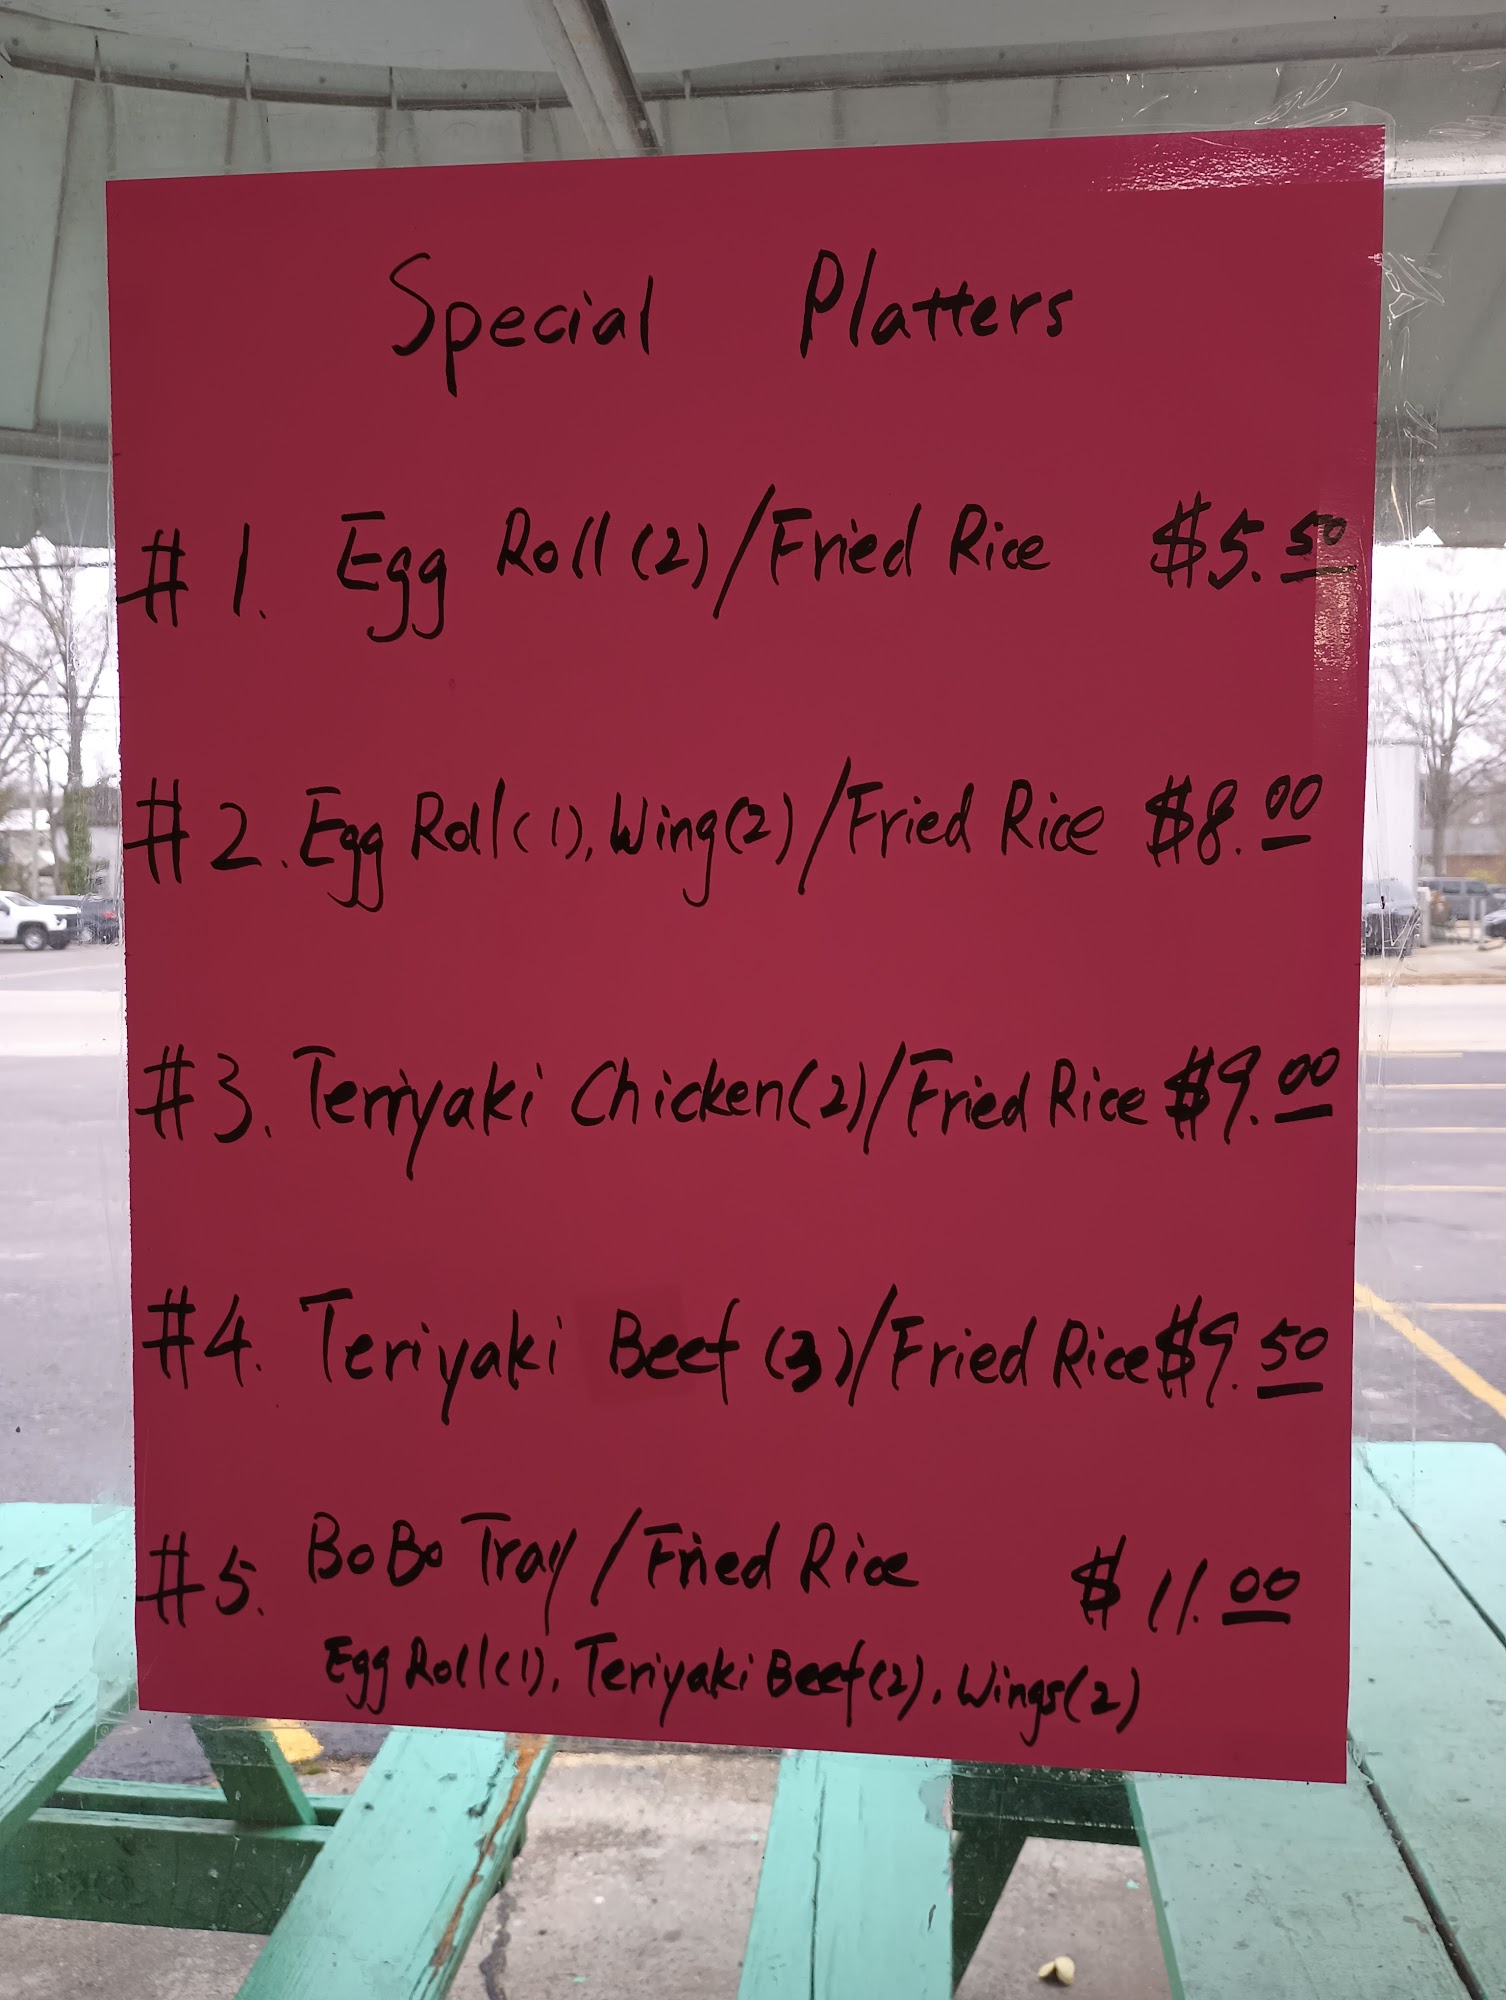 Special Platters
#1. Egg Roll (2)/Fried Rice $5.50
#2. Egg Roll(1), Wing(2)/Fried Rice $8.00
#3. Teriyaki Chicken(2)/Fried Rice $9.00
#4. Teriyaki Beef (3)/Fried Rice $9.50
#5. BoBo Tray/Fried Rice $11.00
Egg Roll(1), Teriyaki Beef(2), Wings(2)